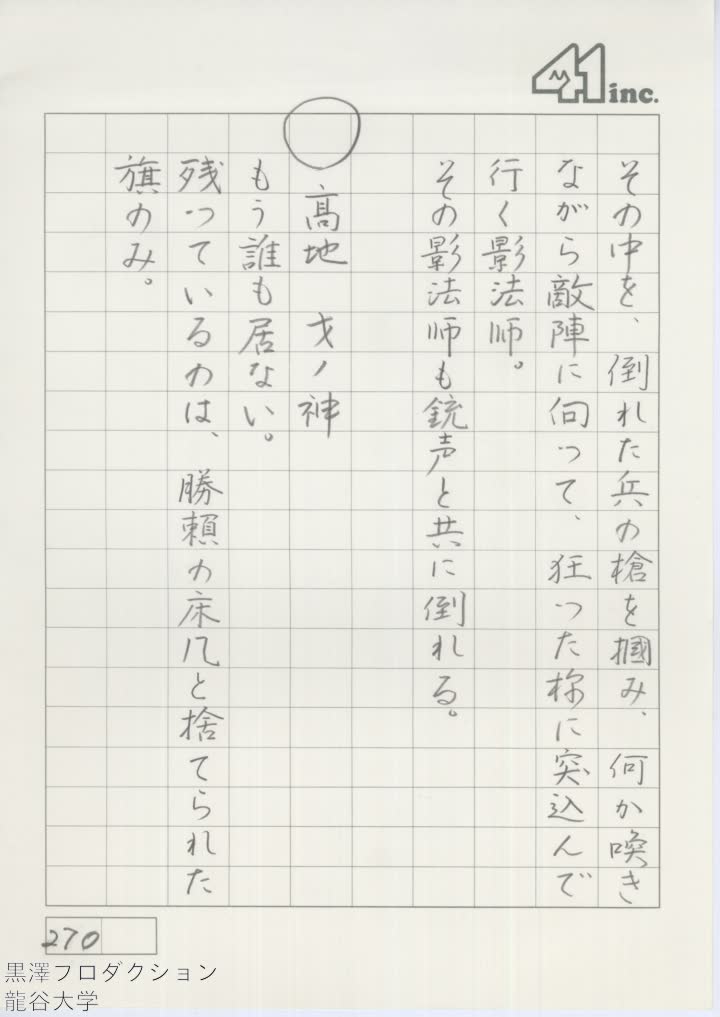 41 inc.
その中を、倒れた兵の槍を掴み、何か喚き
ながら敵陣に向って、狂った様に突込んで
行く影法師。
その影法師も銃声と共に倒れる。
○ 高地 才ノ神
もう誰も居ない。
残っているのは、勝頼の床几と捨てられた
旗のみ。
270
黒澤プロダクション
龍谷大学